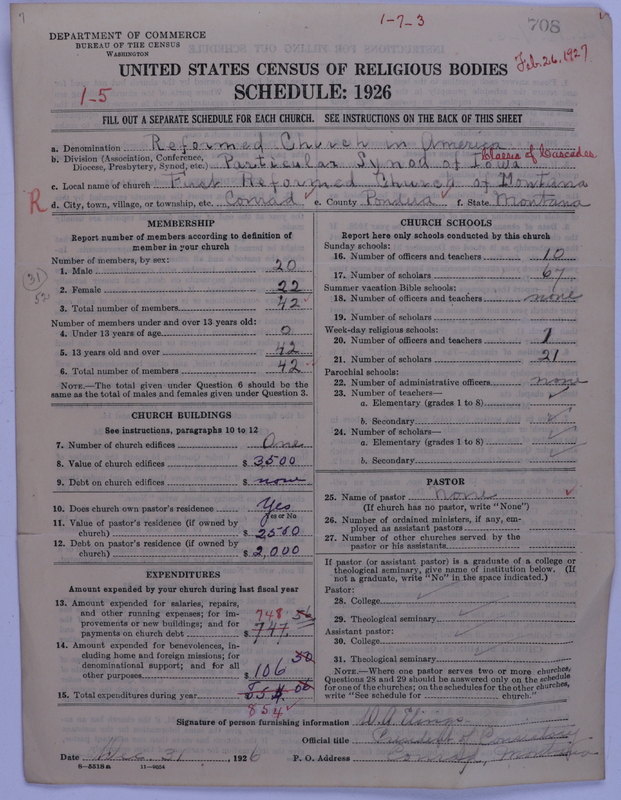 7
1-7-3
708
DEPARTMENT OF COMMERCE
BUREAU OF THE CENSUS
WASHINGTON
Feb. 26, 1927
UNITED STATES CENSUS OF RELIGIOUS BODIES
1-5
SCHEDULE: 1926
FILL OUT A SEPARATE SCHEDULE FOR EACH CHURCH. SEE INSTRUCTIONS ON THE BACK OF THIS SHEET
a. Denomination Reformed Church in America
b. Division (Association, Conference, Diocese, Presbytery, Synod, etc.) Particular Synod of Iowa Classis of Cascades
c. Local name of church First Reformed Church of Montana
R d. City, town, village, or township, etc. Conrad e. County Pondera f. State Montana
MEMBERSHIP
Report number of members according to definition of
member in your church
Number of members, by sex:
1. Male 20
31
52
2. Female 22
3. Total number of members 42
Number of members under and over 13 years old:
4. Under 13 years of age 0
5. 13 years old and over 42
6. Total number of members 42
NOTE.—The total given under Question 6 should be the
same as the total of males and females given under Question 3.
CHURCH BUILDINGS
See instructions, paragraphs 10 to 12
7. Number of church edifices One
8. Value of church edifices $ 3500
9. Debt on church edifices $ none
10. Does church own pastor's residence Yes
Yes or No
11. Value of pastor's residence (if owned by
church) $ 2500
12. Debt on pastor's residence (if owned by
church) $ 2,000
EXPENDITURES
Amount expended by your church during last fiscal year
13. Amount expended for salaries, repairs,
and other running expenses; for im-
provements or new buildings; and for
payments on church debt $ 747. 56
748
14. Amount expended for benevolences, in-
cluding home and foreign missions; for
denominational support; and for all
other purposes $ 106 50
15. Total expenditures during year 854. 06
854
CHURCH SCHOOLS
Report here only schools conducted by this church
Sunday schools:
16. Number of officers and teachers 10
17. Number of scholars 67
Summer vacation Bible schools:
18. Number of officers and teachers none
19. Number of scholars
Week-day religious schools:
20. Number of officers and teachers 1
21. Number of scholars 21
Parochial schools:
22. Number of administrative officers none
23. Number of teachers—
a. Elementary (grades 1 to 8)
b. Secondary
24. Number of scholars—
a. Elementary (grades 1 to 8)
b. Secondary
PASTOR
25. Name of pastor none
(If church has no pastor, write "None")
26. Number of ordained ministers, if any, em-
ployed as assistant pastors
27. Number of other churches served by the
pastor or his assistants
If pastor (or assistant pastor) is a graduate of a college or
theological seminary, give name of institution below. (If
not a graduate, write "No" in the space indicated.)
Pastor:
28. College
29. Theological seminary
Assistant pastor:
30. College
31. Theological seminary
NOTE.—Where one pastor serves two or more churches,
Questions 28 and 29 should be answered only on the schedule
for one of the churches; on the schedules for the other churches,
write "See schedule for church."
Signature of person furnishing information
Official title President of Consistory
Date Dec. 31, 1926 P. O. Address Conrad, Montana
8—5518a 11—9054